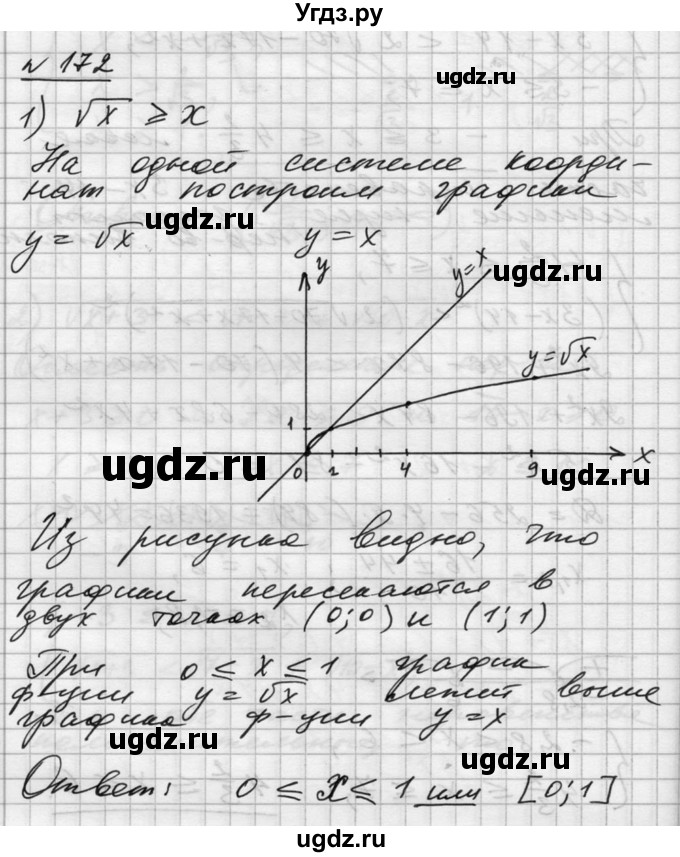 Угдз.ру
№ 172
ugdz.ru
1) √x ⩾ x
На одной системе коорди-
нат построим графики
ugdz.ru
y = √x   y = x
y
y=x
ugdz.ru
y=√x
1
ugdz.ru
0 1 4 9 x
ugdz.ru
Из рисунка видно, что
графики пересекаются в
двух точках (0;0) и (1;1)
ugdz.ru
При 0 ≤ x ≤ 1 график
ф-ции y = √x лежит выше
графика ф-ции y = x
ugdz.ru
ugdz.ru
Ответ: 0 ≤ x ≤ 1 или [0;1]
ugdz.ru